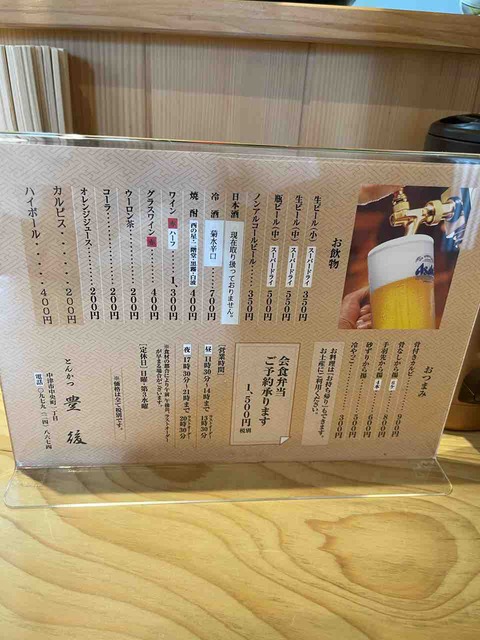 お飲物
生ビール(小) スーパードライ 350円
生ビール(中) スーパードライ 550円
瓶ビール(中) スーパードライ 500円
ノンアルコールビール 350円
日本酒 現在取り扱っておりません。
冷酒 菊水辛口 700円
焼酎 西の星・二階堂・黒霧・白波 400円
ワイン ハーフ 1,300円
グラスワイン 400円
ウーロン茶 200円
コーラ 200円
オレンジジュース 200円
カルピス 200円
ハイボール 400円
Asahi
おつまみ
骨付きカルビ
骨なしから揚 900円
手羽先から揚 800円
砂ずりから揚 600円
冷やっこ 300円
お料理は「お持ち帰り」もできます。
お土産にご利用ください。
会食弁当
ご予約承ります
1,500円 税別
【営業時間】
昼 11時30分〜14時まで
夜 17時30分〜21時まで
【定休日】日曜・第3水曜
※価格は全て税別です。
とんかつ 豊後
中津市中央町一丁目